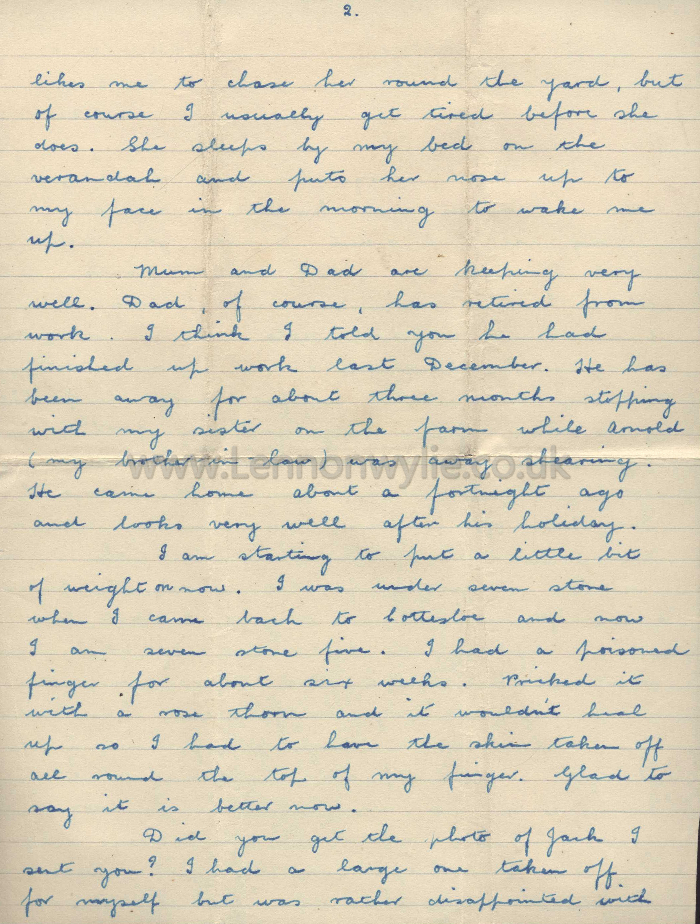 2.
likes me to chase her round the yard, but
of course I usually get tired before she
does. She sleeps by my bed on the
verandah and puts her nose up to
my face in the morning to wake me
up.
Mum and Dad are keeping very
well. Dad, of course, has retired from
work. I think I told you he had
finished up work last December. He has
been away for about three months stopping
with my sister on the farm while Arnold
(my brother in law) was away shearing.
www.Lennonwylie.co.uk
He came home about a fortnight ago
and looks very well after his holiday.
I am starting to put a little bit
of weight on now. I was under seven stone
when I came back to Cottesloe and now
I am seven stone five. I had a poisoned
finger for about six weeks. Pricked it
with a rose thorn and it wouldn't heal
up so I had to have the skin taken off
all round the top of my finger. Glad to
say it is better now.
Did you get the photo of Jack I
sent you? I had a large one taken off
for myself but was rather disappointed with